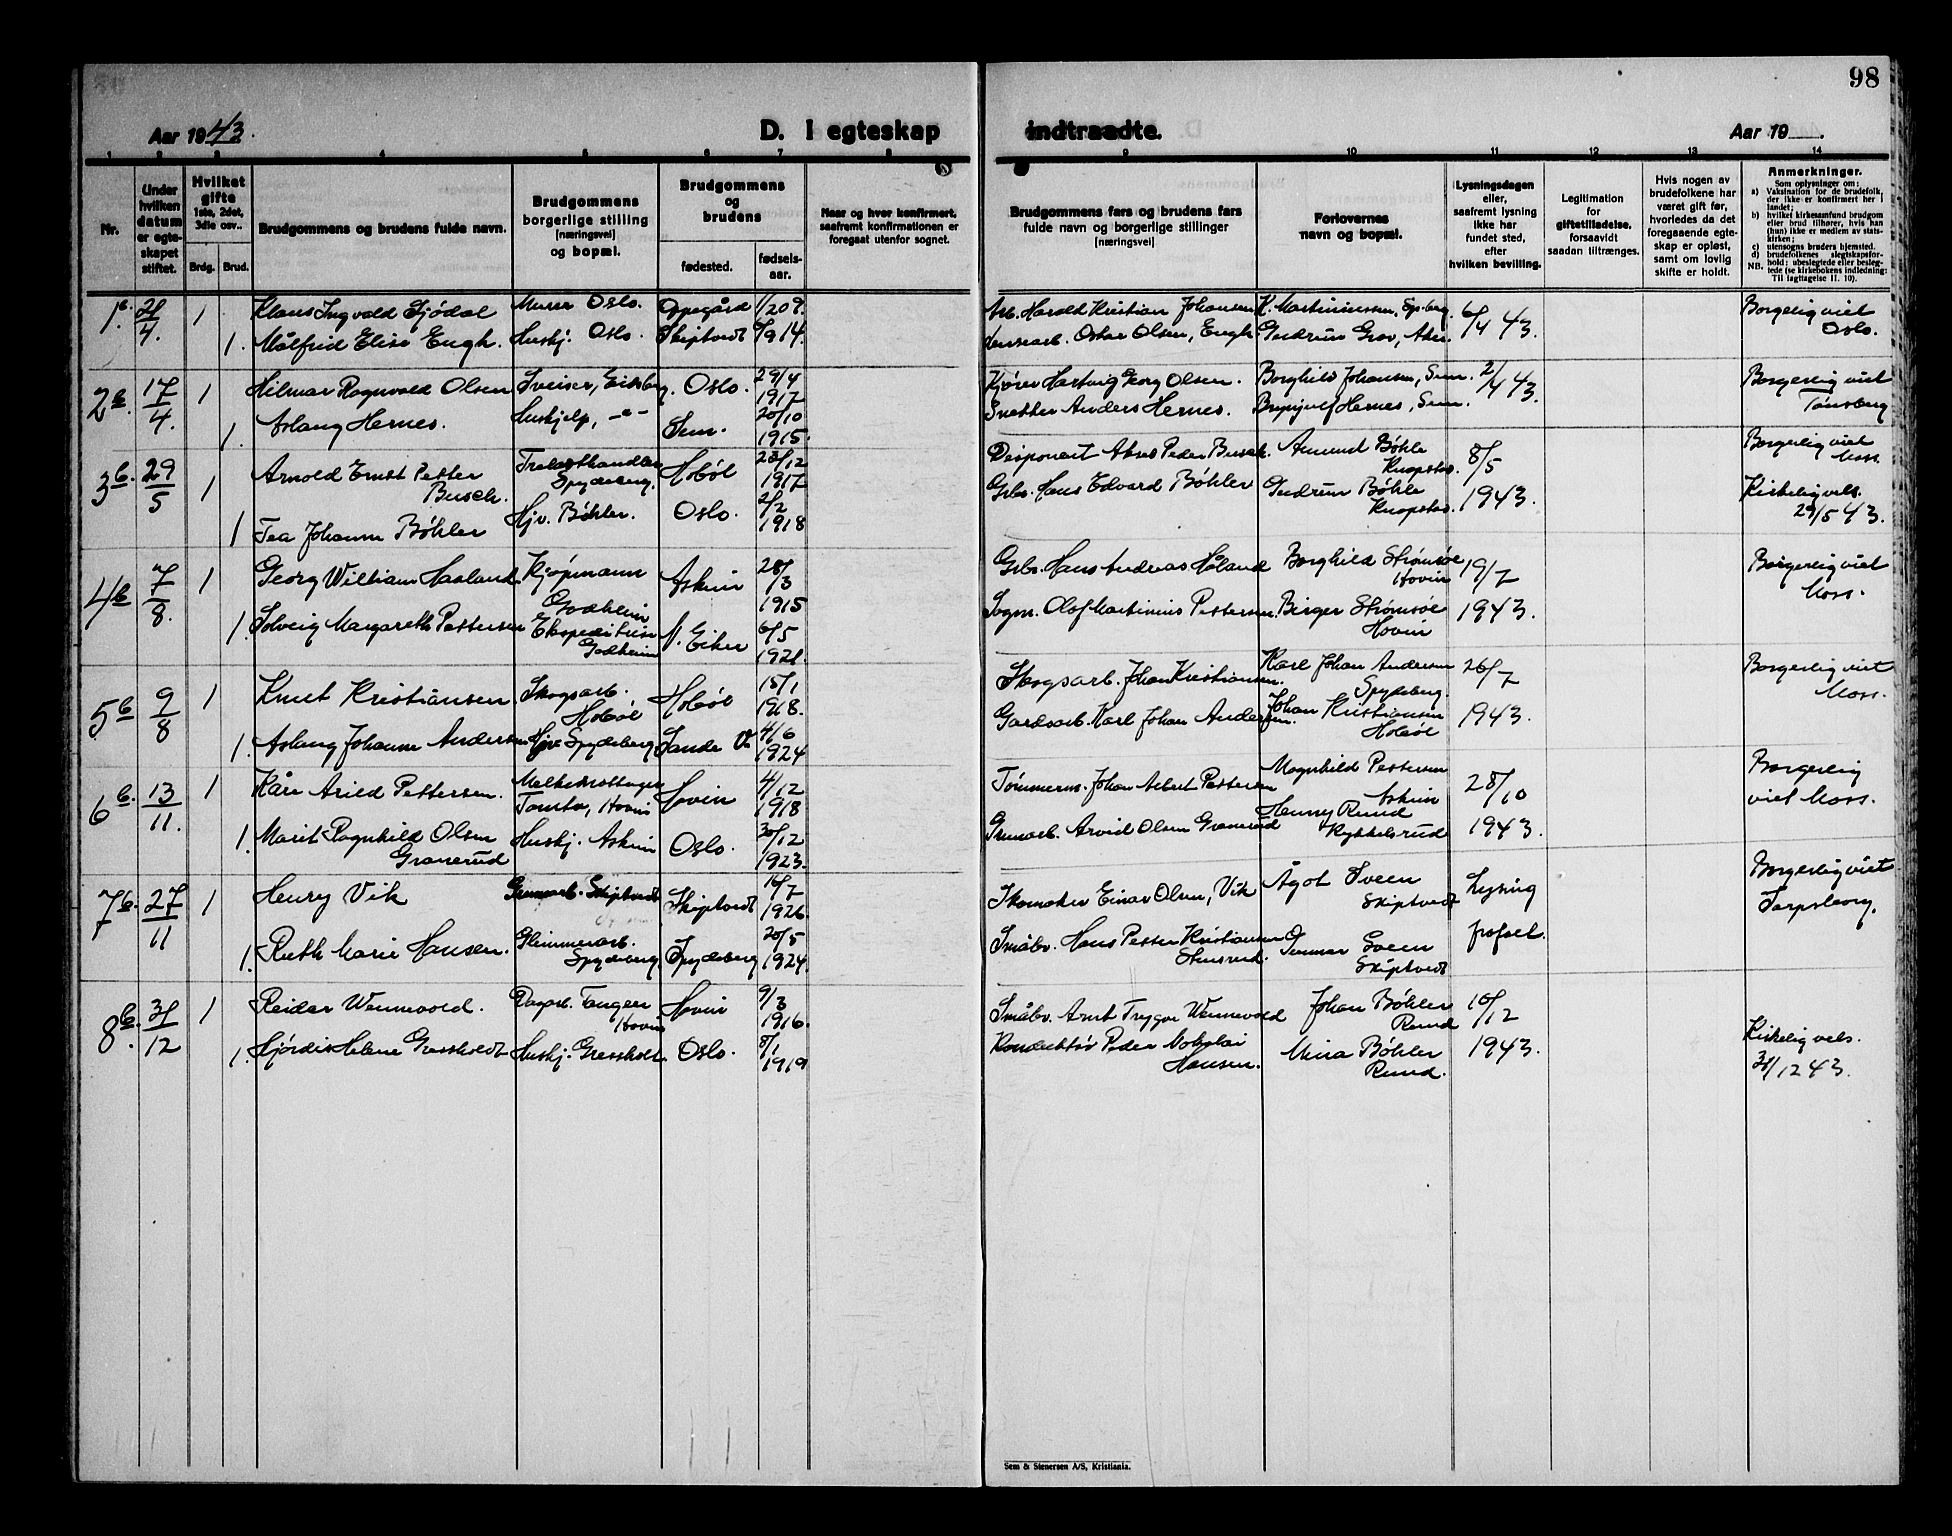 98
Aar 1943.
D. I egteskap
indtraadte.
Aar 19 .
1 2 3 4 5 6 7 8
9 10 11 12 13 14
Nr.
Under hvilken datum er egteskapet stiftet.
Hvilket gifte 1ste, 2det, 3die osv..
Brdg. Brud.
Brudgommens og brudens fulde navn.
Brudgommens borgerlige stilling [næringsvei] og bopæl.
Brudgommens og brudens
fødested.
fødselsaar.
Naar og hvor konfirmert, saafremt konfirmationen er foregaat utenfor sognet.
Brudgommens fars og brudens fars fulde navn og borgerlige stillinger [næringsvei]
Forlovernes navn og bopæl.
Lysningsdagen eller, saafremt lysning ikke har fundet sted, efter hvilken bevilling.
Legitimation for giftetilladelse, forsaavidt saadan tiltrænges.
Hvis nogen av brudefolkene har været gift før, hvorledes da det foregaaende egteskap er opløst, samt om lovlig skifte er holdt.
Anmerkninger.
Som oplysninger om:
a) Vaksination for de brudefolk, der ikke er konfirmert her i landet;
b) hvilket kirkesamfund brudgom eller brud tilhører, hvis han (hun) ikke er medlem av statskirken;
c) utensogns bruders hjemsted.
d) brudefolkenes slegtskapsforhold; ubeslegtede eller beslegtede (se kirkebokens indledning: Til Iagttagelse II. 10).
NB.
1 b. 21/4. 1 Klaus Ingvald Sjødal Murer Oslo. Oppegård 1/2 09. Arb. Harald Kristian Johansen K. Martiniussen, 6/4 43. Borgelig viet Oslo.
1. Målfrid Elise Engh. Hushj. Oslo. Skiptvedt 14. Oskar Olsen, Engh Gudrun Grav, Aker.
2 b. 17/4. 1 Hilmar Ragnvald Olsen Sveiser, Eidsberg. Oslo. 29/4 1917 Kjører Hartvig Georg Olsen. Borghild Johansen, Sem. 2/4 43. Borgerlig viet Tønsberg
1. Aslaug Hernes. Hushjelp, -"- Sem. 20/10 1915. Snekker Anders Hernes. Brynjulf Hernes, Sem.
3 b. 29/5 1 Arnold Ernst Petter Busch. Trelasthandler Spydeberg. Hobøl 23/12 1917 Disponent Aksel Peder Busch. Amund Bøhle Knapstad. 8/5 1943. Borgerlig viet Moss.
1 Tea Johanne Bøhler Hjv. Bøhler. Oslo. 2/2 1918 Grbr. Hans Edvard Bøhler Gudrun Bøhle Knapstad. Kirkelig vels. 29/5 43.
4 b 7/8. 1 Georg William Haaland Kjøpmann Godheim Askim 28/3 1915 Grbr. Hans Andreas Håland Borghild Strømsøe Hovin 19/7 1943. Borgerlig viet Moss.
1. Solveig Margareth Pettersen Ekspeditrise Godheim N. Eiker 6/5 1921. Sogm. Olof Martinius Pettersen. Birger Strømsøe Hovin
5 b 9/8 1 Knut Kristiansen Skogsarb. Hobøl Hobøl 15/1 1918. Skogsarb. Johan Kristiansen. Karl Johan Andersen Spydeberg. 26/7 1943. Borgerlig viet Moss.
1. Aslaug Johanne Andersen Hjv. Spydeberg Sande V. 4/6 1924 Gardsarb. Karl Johan Andersen. Johan Kristiansen Hobøl
6 b. 13/11. 1 Kåre Arild Pettersen. Melkekontrollør Tomter, Hovin Hovin 4/12 1918 Tømmerm. Johan Albert Pettersen Magnhild Pettersen Askim 28/10 1943. Borgerlig viet Moss.
1. Marit Ragnhild Olsen Granerud Hushj. Askim Oslo. 30/12 1923. Grunarb. Arvid Olsen Granerud Henny Rund Kykkelsrud
7 b. 27/11 1 Henry Vik Skiptvedt Skiptvedt 16/7 1926. Skomaker Einar Olsen, Vik Ågot Sveen Skiptvedt Lysing frafalt. Borgerlig viet Sarpsborg.
1. Ruth Marie Hansen. Glimmerarb. Spydeberg. Spydeberg 20/5 1924. Småbr. Hans Petter Kristiansen Stensrud. Gunnar Sveen Skiptvedt
8 b. 31/12 1 Reidar Wennevold. Dagarb. Tangen Hovin Hovin 9/3 1916. Småbr. Arnt Trygve Wennevold Johan Bøhler Rund 10/12 1943. Kirkelig vels. 31/12 43.
1. Hjørdis Helene Gressholdt Hushj. Gressholdt. Oslo. 8/1 1919 Konduktør Peder Nokolai Hansen. Mina Bøhler Rund.
Sem & Stenersen A/S, Kristiania.